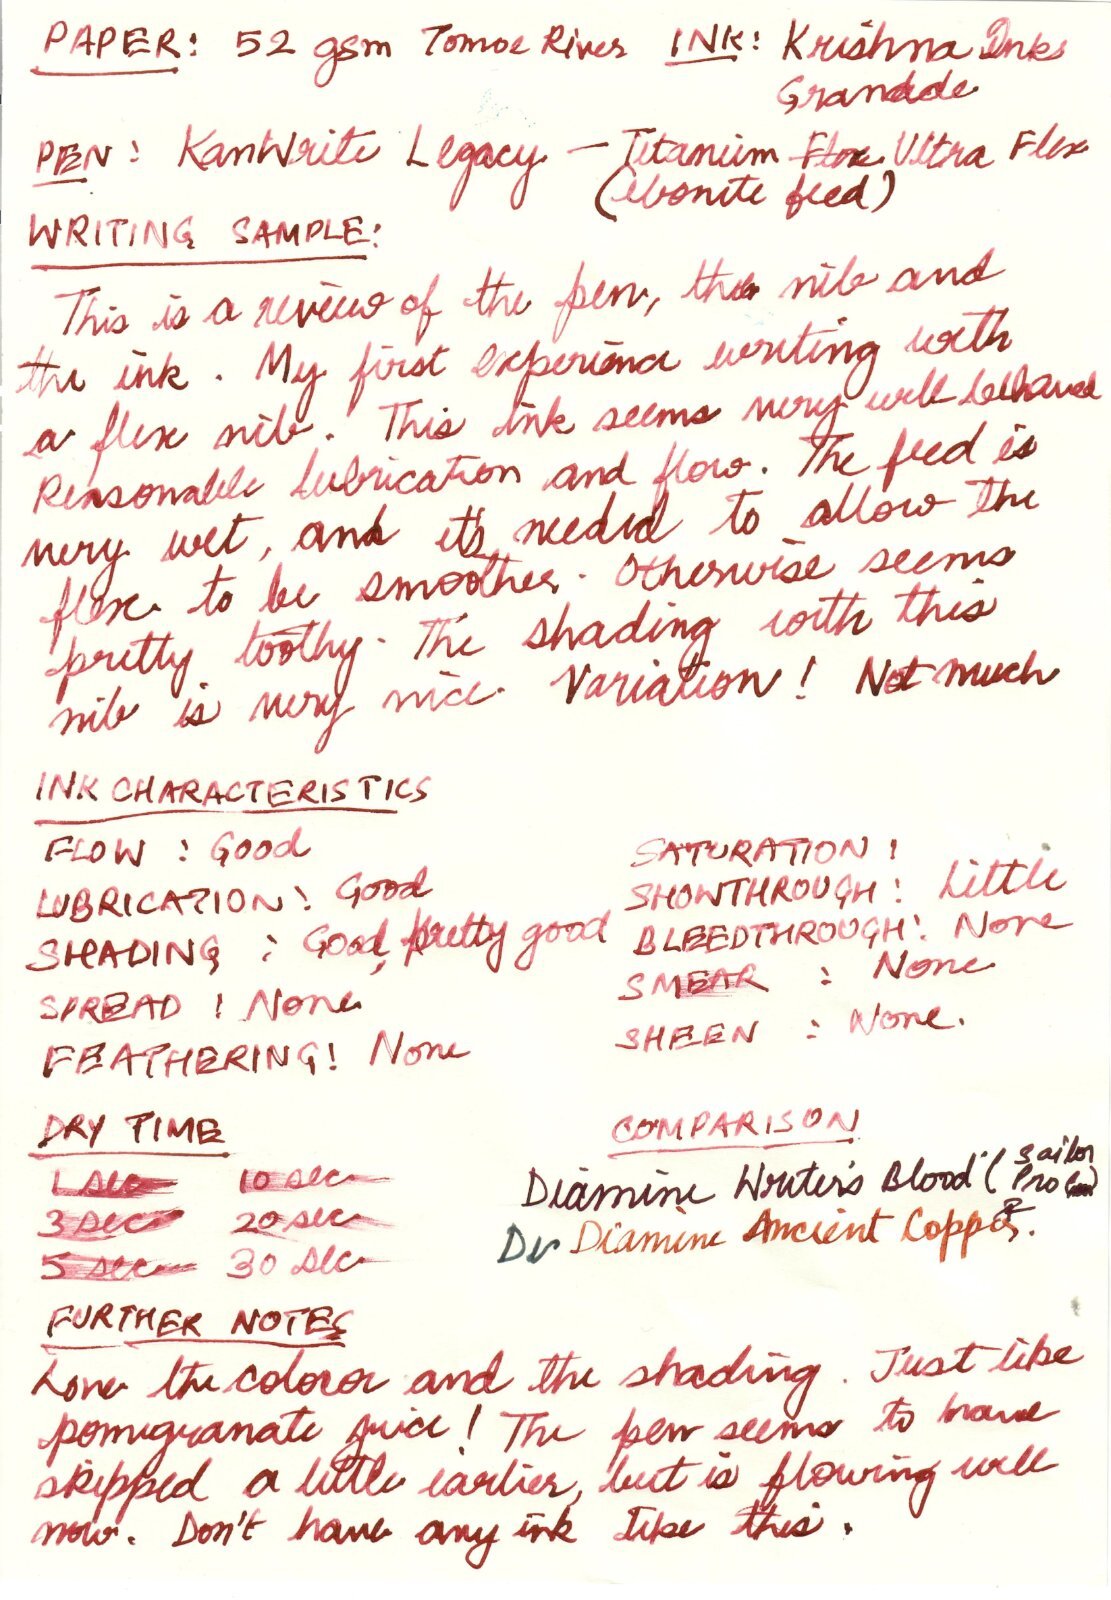 PAPER: 52 gsm Tomoe River INK: Krishna Inks
Granade
PEN: KanWrite Legacy - Titanium Flex Ultra Flex
(ebonite feed)
WRITING SAMPLE:
This is a review of the pen, the nib and
the ink. My first experience writing with
a flex nib. This ink seems very well behaved
Reasonable lubrication and flow. The feed is
very wet, and it's needed to allow the
flex to be smoother. Otherwise seems
pretty toothy. The shading with this
nib is very nice. Variation! Not much
INK CHARACTERISTICS
FLOW: Good
LUBRICATION: Good
SHADING: Good, pretty good
SPREAD: None
FEATHERING: None
SATURATION:
SHOWTHROUGH: Little
BLEEDTHROUGH: None
SMEAR: None
SHEEN: None.
DRY TIME
1 sec 10 sec
3 sec 20 sec
5 sec 30 sec
COMPARISON
Diamine Writer's Blood (Sailor
Pro
Diamine Ancient Copper.
FURTHER NOTES
Love the color and the shading. Just like
pomegranate juice! The pen seems to have
skipped a little earlier, but is flowing well
now. Don't have any ink like this.